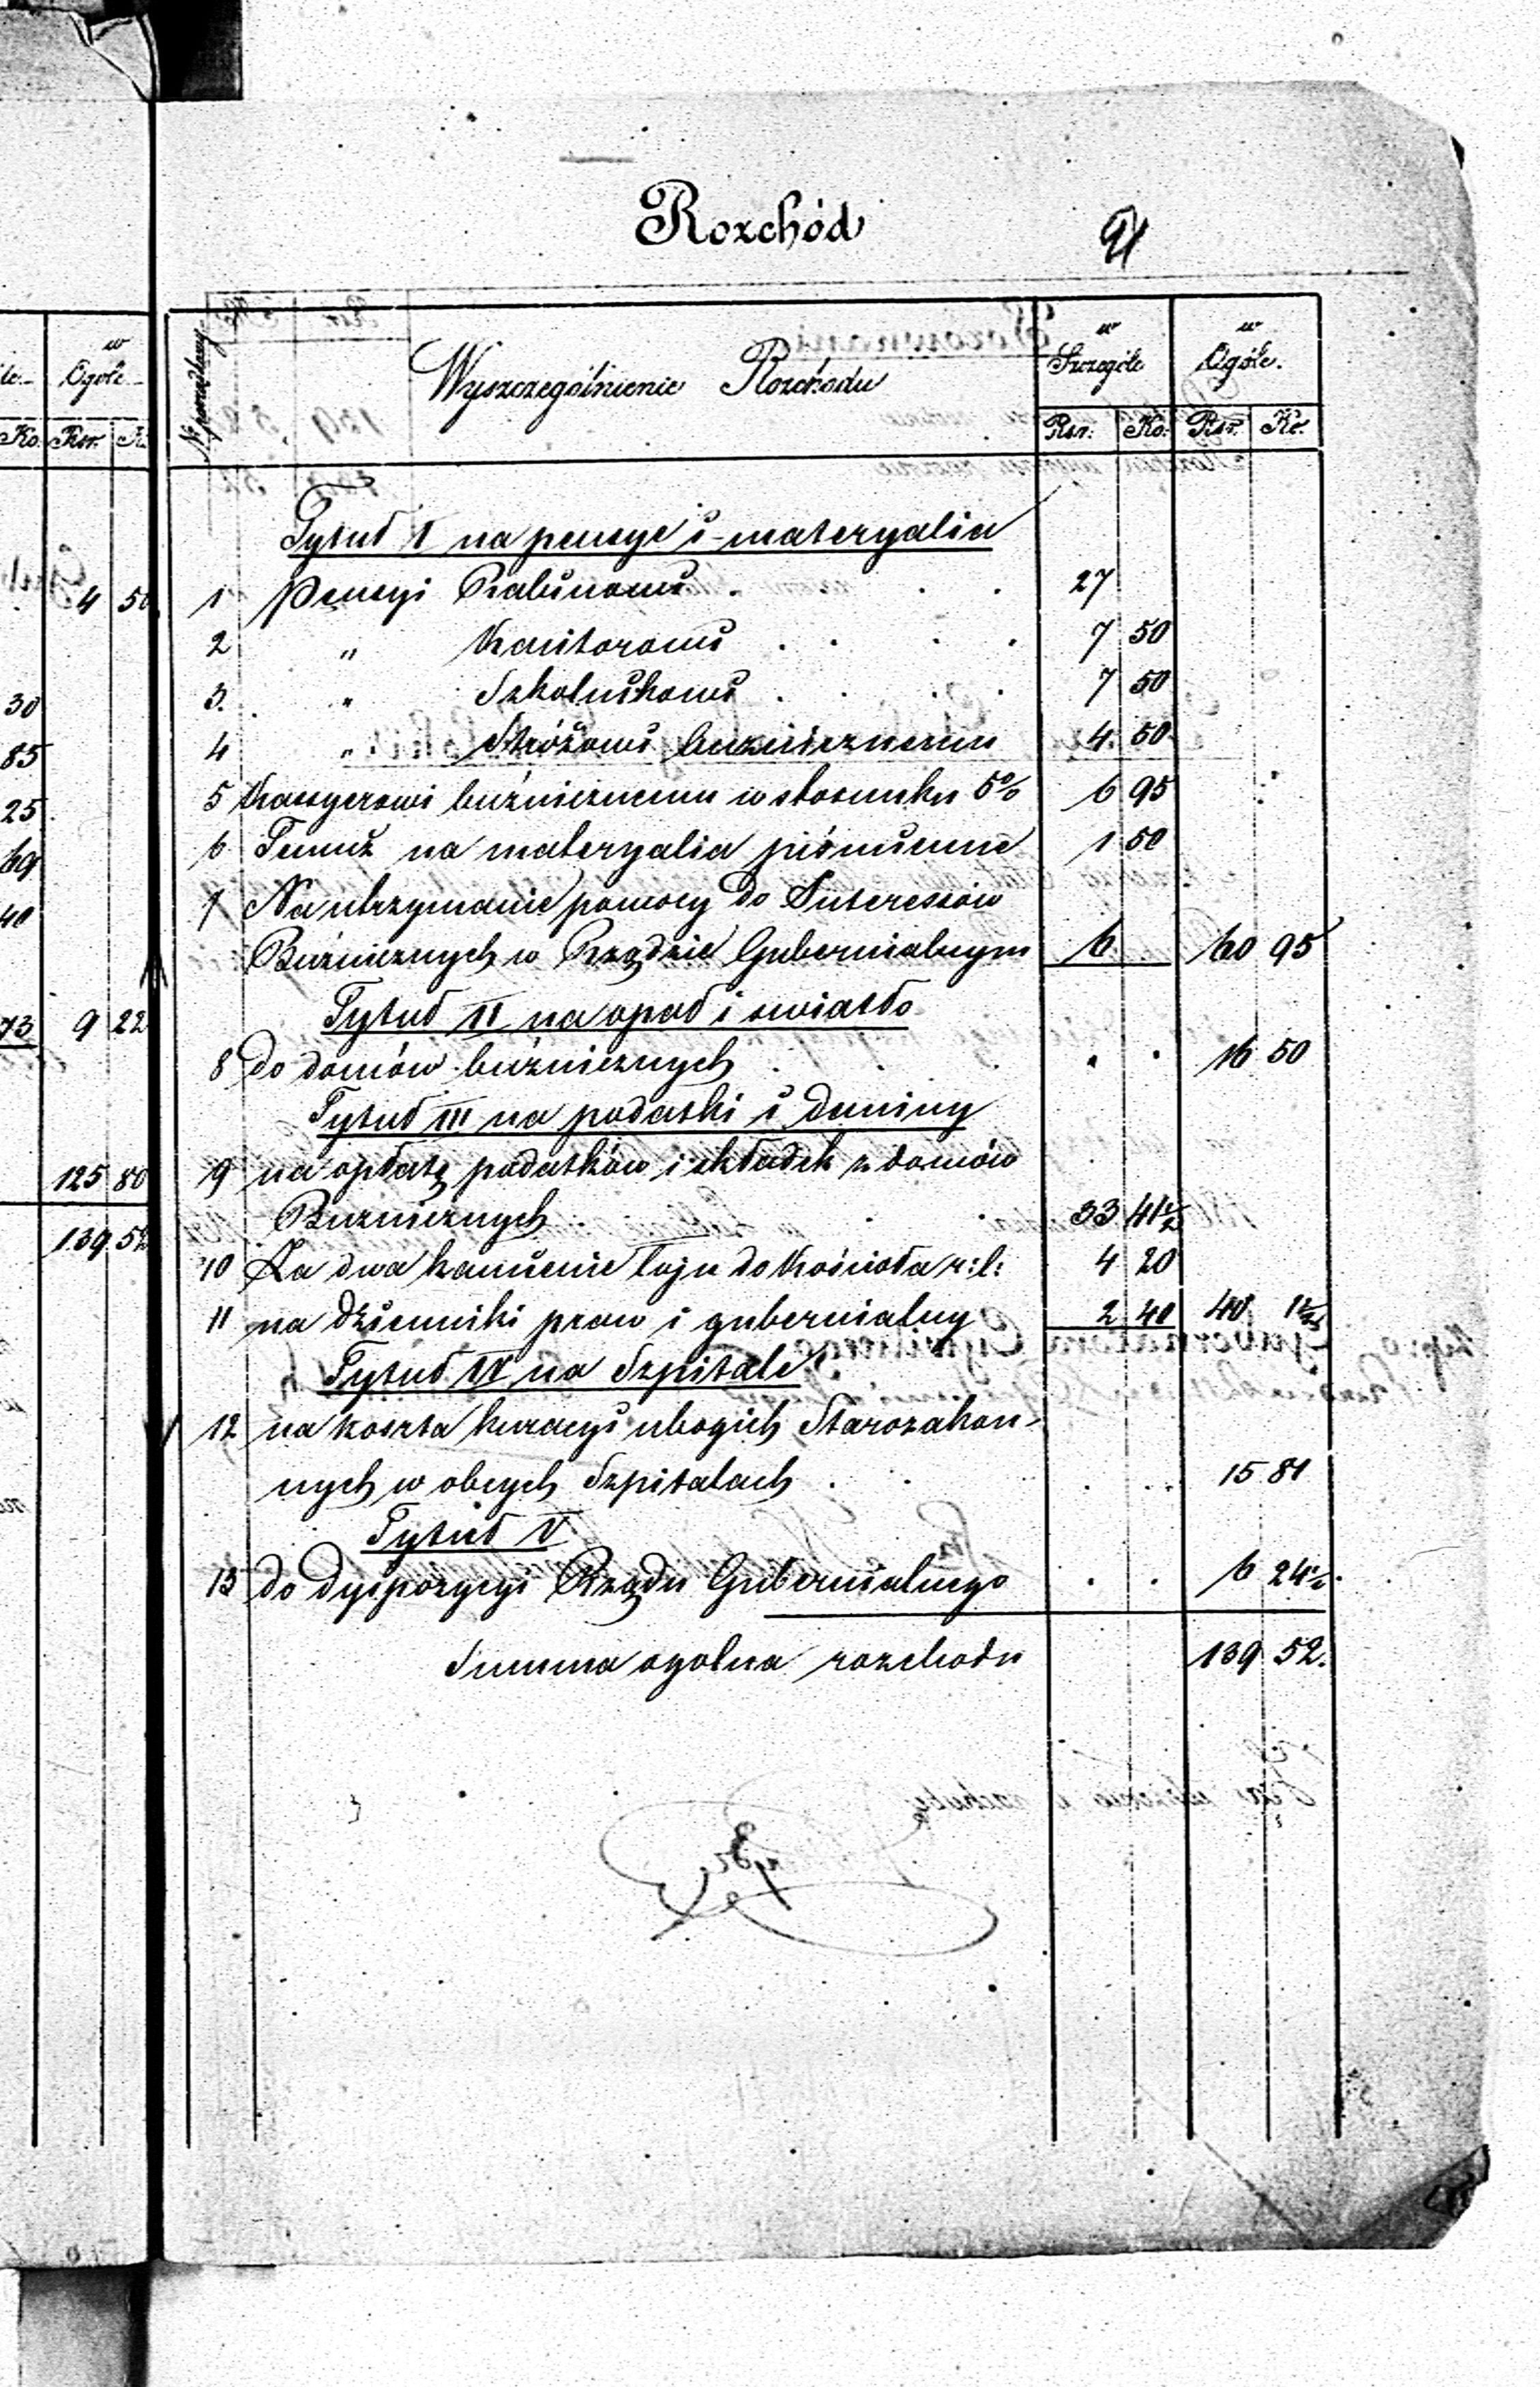 Rozchód
91
w
Ogóle
Ko. Rsr. K.
4 50
30
85
25
69
40
73 9 22
125 80
139 52
No porządkowy
Wyszczególnienie Rozchodu
w Szczególe
w Ogóle.
Rsr. Ko. Rsr. Ko.
Tytuł I na pensye i materyalia
1 Pensyi Rabinowi . . . 27
2 " Kantorowi . . . . 7 50
3. " Szkolnikowi . . . . 7 50
4 " Stróżowi buźnicznemu 4 50
5 Kassyerowi buźnicznemu w stosunku 5% 6 95
6 Temuż na materyalia piśmienne 1 50
7 Na utrzymanie pomocy do Interessów
Buźnicznych w Rządzie Gubernialnym 6 60 95
Tytuł II na opał i swiatło
8 do domów buźnicznych . . . 16 50
Tytuł III na podatki i daniny
9 na opłatę podatków i składek z domów
Buźnicznych . . . 33 41 1/2
10 Za dwa kamienie łoju do Kościoła r: l: 4 20
11 na dzienniki praw i gubernialny 2 40 40 1 1/2
Tytuł IV na Szpitale
12 na koszta kuracyi ubogich Starozakon-
nych w obcych Szpitalach . . . 15 81
Tytuł V
13 do dyspozycyi Rządu Gubernialnego . . 6 24 1/2
Summa ogolna rozchodu 139 52.